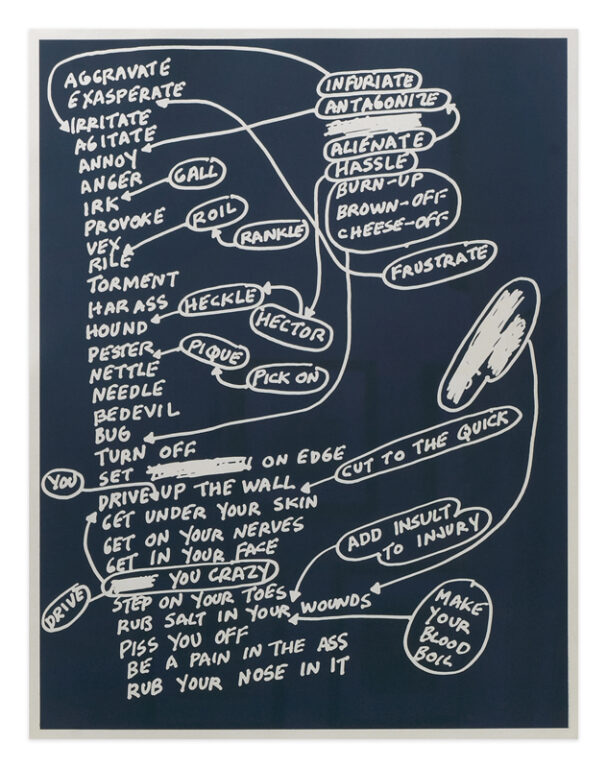 AGGRAVATE
EXASPERATE
IRRITATE
AGITATE
ANNOY
ANGER
IRK
PROVOKE
VEX
RILE
TORMENT
HARASS
HOUND
PESTER
NETTLE
NEEDLE
BEDEVIL
BUG
TURN OFF
SET ON EDGE
DRIVE UP THE WALL
GET UNDER YOUR SKIN
GET ON YOUR NERVES
GET IN YOUR FACE
YOU CRAZY
STEP ON YOUR TOES
RUB SALT IN YOUR WOUNDS
PISS YOU OFF
BE A PAIN IN THE ASS
RUB YOUR NOSE IN IT
YOU
DRIVE
GALL
ROIL
RANKLE
HECKLE
HECTOR
PIQUE
PICK ON
INFURIATE
ANTAGONIZE
ALIENATE
HASSLE
BURN-UP
BROWN-OFF
CHEESE-OFF
FRUSTRATE
CUT TO THE QUICK
ADD INSULT
TO INJURY
MAKE
YOUR
BLOOD
BOIL